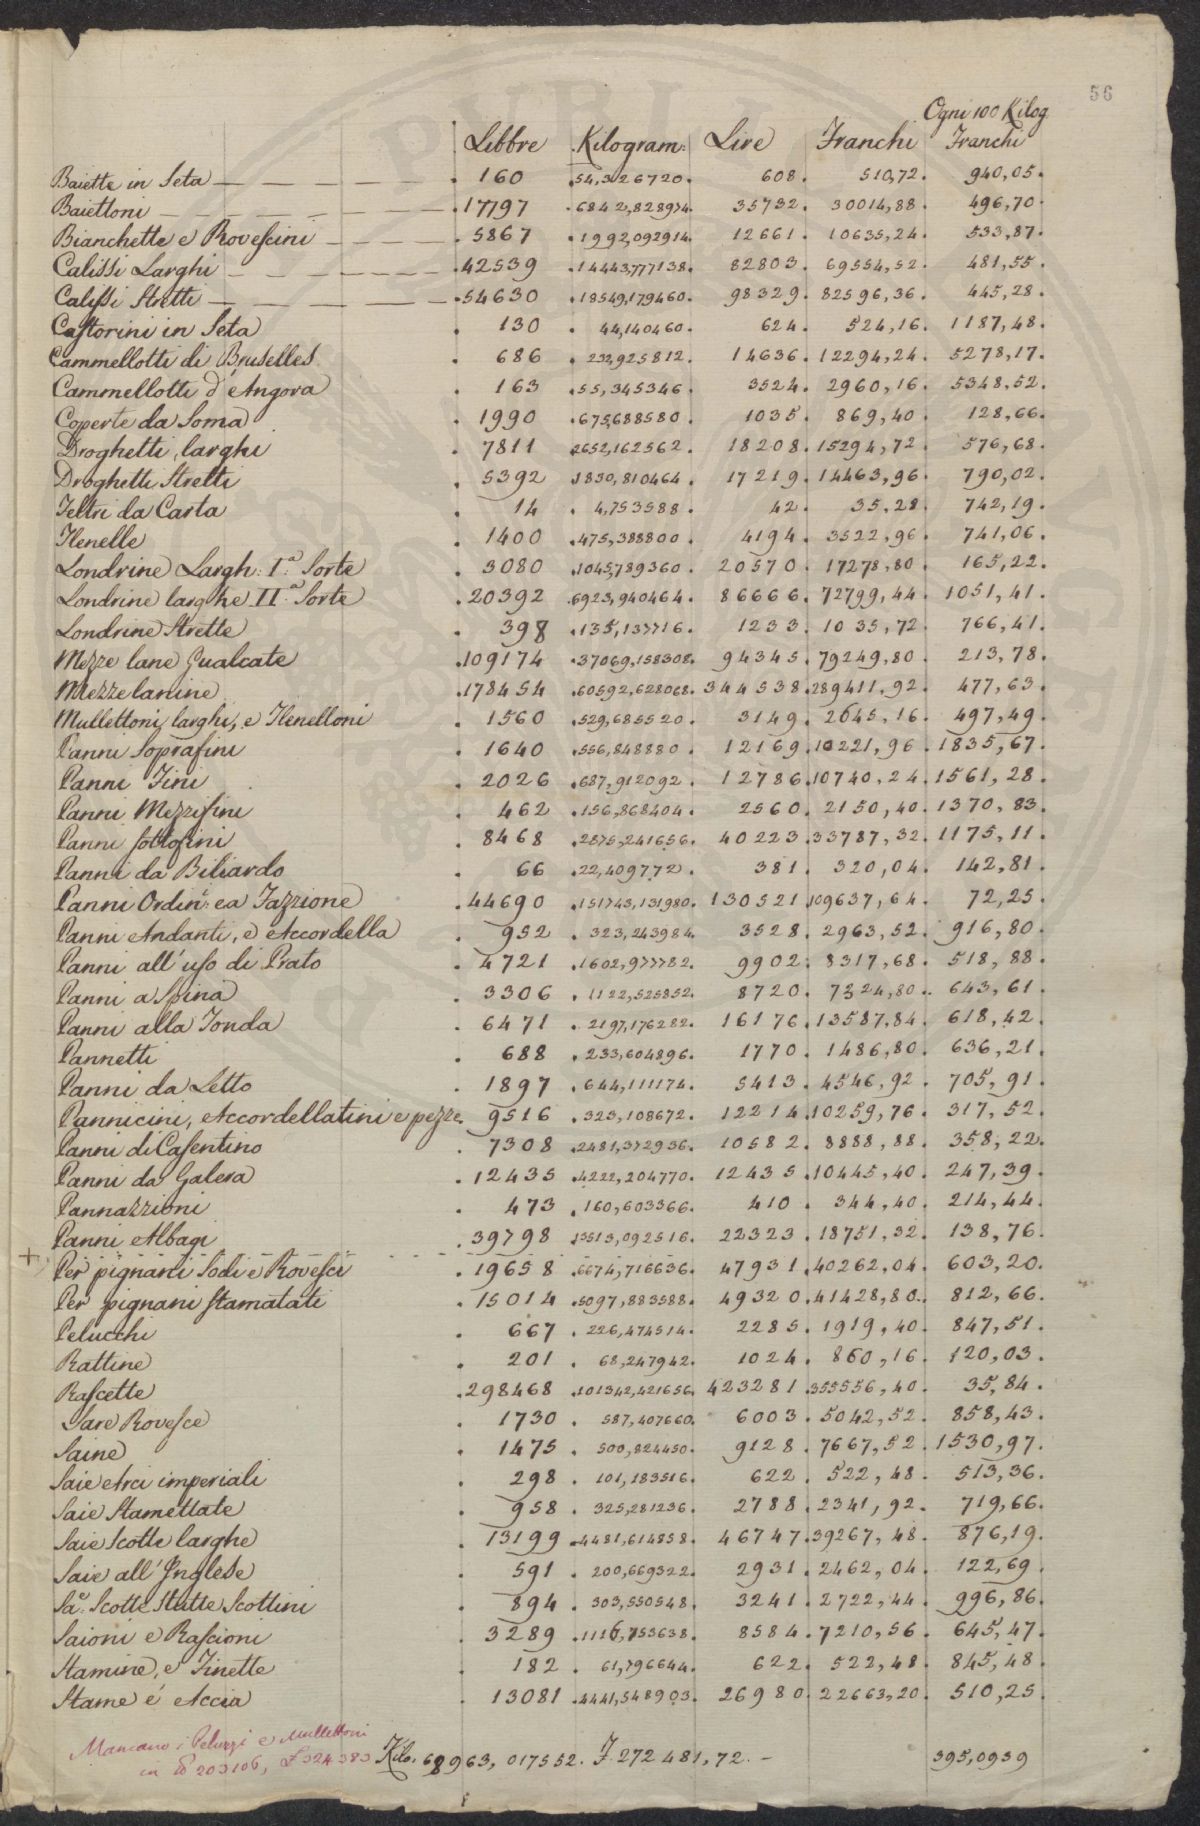 56
Ogni 100 Kilog
Libbre Kilogram: Lire Franchi Franchi
Baiette in Seta — — — — . 160 .54,326720. 608. 510,72. 940,05.
Baiettoni — — — — — .17797 .6842,828974. 35732. 30014,88. 496,70.
Bianchette e Rovescini — — — . 5867 .1992,092914. 12661. 10635,24. 533,87.
Calissi Larghi — — — — .42539 .14443,777138. 82803. 69554,52. 481,55.
Calissi Stretti — — — — .54630 .18549,179460. 98329. 82596,36. 445,28.
Castorini in Seta . 130 . 44,140460. 624. 524,16. 1187,48.
Cammellotti di Bruselles . 686 . 232,925812. 14636. 12294,24. 5278,17.
Cammellotti d'Angora . 163 .55,345346. 3524. 2960,16. 5348,52.
Coperte da Soma . 1990 .675,688580. 1035. 869,40. 128,66.
Droghetti larghi . 7811 .2652,162562. 18208. 15294,72. 576,68.
Droghetti Stretti . 5392 .1830,810464. 17219. 14463,96. 790,02.
Feltri da Carta . 14 . 4,753588. 42. 35,28. 742,19.
Flenelle . 1400 .475,388800. 4194. 3522,96. 741,06.
Londrine Largh: I.a Sorte . 3080 .1045,789360. 20570. 17278,80. 165,22.
Londrine larghe II.a Sorte .20392 .6923,940464. 86666. 72799,44. 1051,41.
Londrine Strette . 398 .135,137716. 1233. 1035,72. 766,41.
Mezze lane Gualcate .109174 .37069,158308. 94345. 79249,80. 213,78.
Mezzelanine .178454 .60592,628068. 344538. 289411,92. 477,63.
Mullettoni larghi, e Flenelloni . 1560 .529,685520. 3149. 2645,16. 497,49.
Panni Soprafini . 1640 .556,848880. 12169. 10221,96. 1835,67.
Panni Fini . 2026 .687,912092. 12786. 10740,24. 1561,28.
Panni Mezzifini . 462 .156,868404. 2560. 2150,40. 1370,83.
Panni sottofini . 8468 .2875,241656. 40223. 33787,32. 1175,11.
Panni da Biliardo . 66 .22,409772. 381. 320,04. 142,81.
Panni Ordin: e a Fazzione .44690 .151743,131980. 130521. 109637,64. 72,25.
Panni Andanti, e Accordella . 952 . 323,243984. 3528. 2963,52. 916,80.
Panni all'uso di Prato . 4721 .1602,977782. 9902. 8317,68. 518,88.
Panni a Spina . 3306 .1122,525852. 8720. 7324,80. 643,61.
Panni alla Tonda . 6471 . 2197,176282. 16176. 13587,84. 618,42.
Pannetti . 688 .233,604896. 1770. 1486,80. 636,21.
Panni da Letto . 1897 .644,111174. 5413. 4546,92. 705,91.
Pannicini, Accordellatini e pezze. 9516 .323,108672. 12214. 10259,76. 317,52.
Panni di Casentino . 7308 .2481,372936. 10582. 8888,88. 358,22.
Panni da Galera . 12435 .4222,204770. 12435. 10445,40. 247,39.
Pannazzioni . 473 .160,603366. 410. 344,40. 214,44.
Panni Albagi . 39798 .13513,092516. 22323. 18751,32. 138,76.
+ Per pignani Sodi e Rovesci . 19658 .6674,716636. 47931. 40262,04. 603,20.
Per pignani stamatati . 15014 .5097,883588. 49320. 41428,80. 812,66.
Pelucchi . 667 . 226,474514. 2285. 1919,40. 847,51.
Rattine . 201 . 68,247942. 1024. 860,16. 120,03.
Rascette .298468 .101342,421656. 423281. 355556,40. 35,84.
Sare Rovesce . 1730 . 587,407660. 6003. 5042,52. 858,43.
Saine . 1475 . 500,824450. 9128. 7667,52. 1530,97.
Saie Arci imperiali . 298 . 101,183516. 622. 522,48. 513,36.
Saie Stamettate . 958 . 325,281236. 2788. 2341,92. 719,66.
Saie Scotte larghe . 13199 .4481,614858. 46747. 39267,48. 876,19.
Saie all'Inglese . 591 . 200,669322. 2931. 2462,04. 122,69.
Sa.e Scotte Stutte Scottini . 894 . 303,550548. 3241. 2722,44. 996,86.
Saioni e Rascioni . 3289 .1116,753638. 8584. 7210,56. 645,47.
Stamine, e Finette . 182 . 61,796644. 622. 522,48. 845,48.
Stame é Accia . 13081 .4441,548903. 26980. 22663,20. 510,25.
Mancano i Peluzzi e Mullettoni
in ℔ 203106, £ 324383 Kilo. 68963,017552. F. 272481,72. — 395,0939